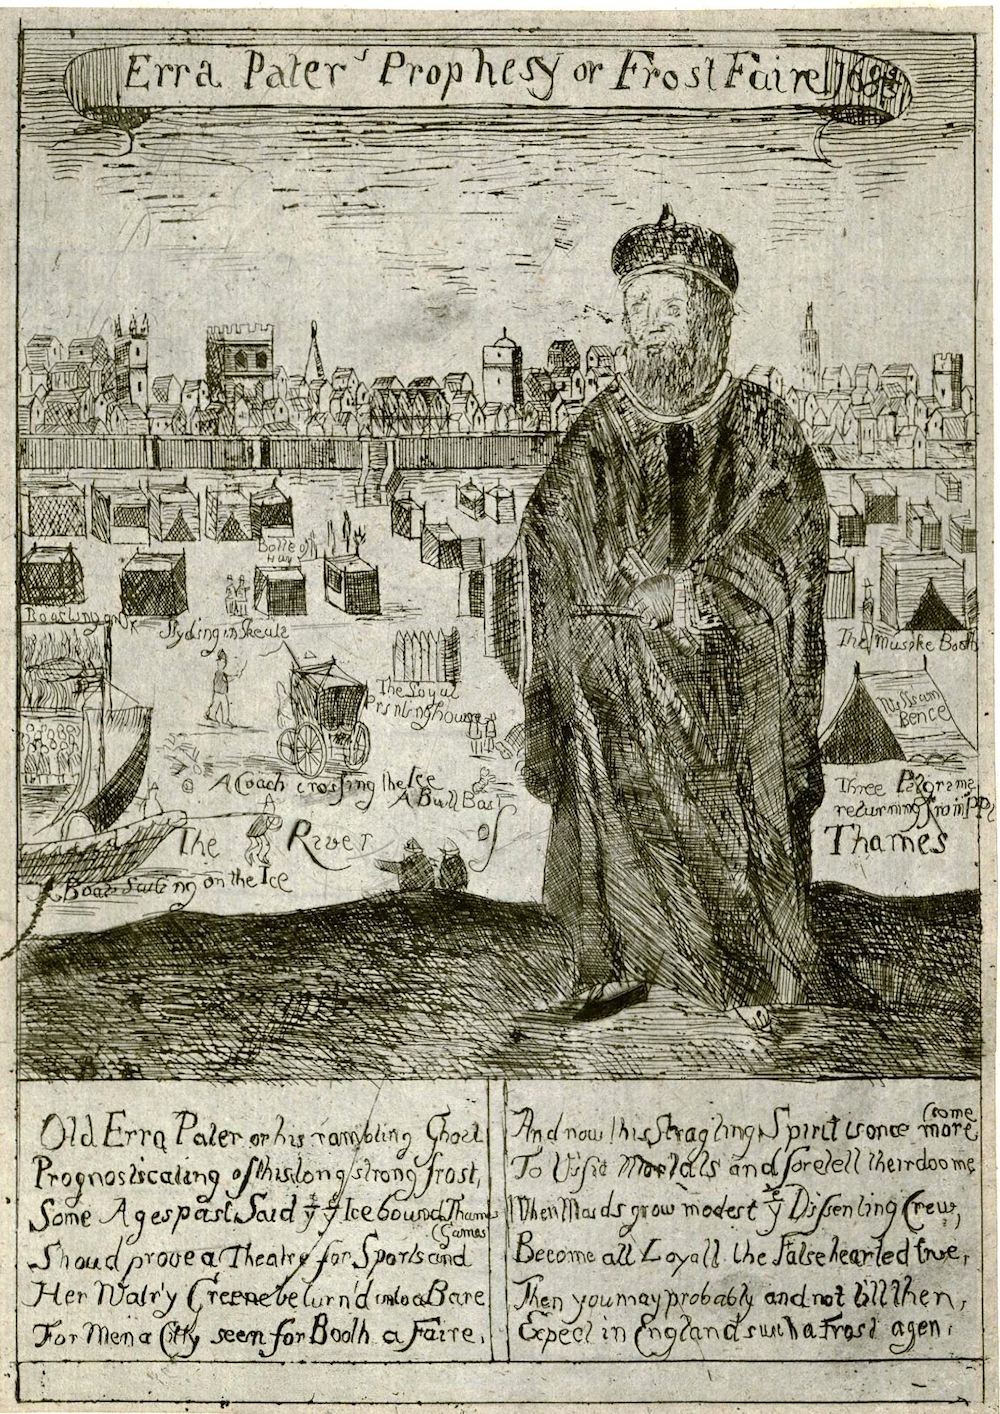 Erra Pater's Prophesy or Frost Faire 1683
Botle of
Hay
Roasting an Ox
Slyding in Skeats
The Musike Booth
The Loyal
Printing house
Wesleam
Bence
A Coach crossing the Ice
A Bull Bait
Three Pilgrims
returning from PP
The River of Thames
Boats Sailing on the Ice
Old Erra Pater or his rambling Ghost
Prognosticating of this long strong frost,
Some Ages past, Said yt ye Ice bound Thames
Shoud prove a Theatre for Sports and
(Games
Her Wat'ry Greene be turn'd unto a Bare
For Men a Citty seem for Booth a Faire.
And now this Stragling Spirit is once more
(come
To Visit Mortals and foretell their doome
When Maids grow modest ye Dissenting Crew,
Become all Loyall the False hearted true,
Then you may probably and not till then,
Expect in England such a Frost agen.